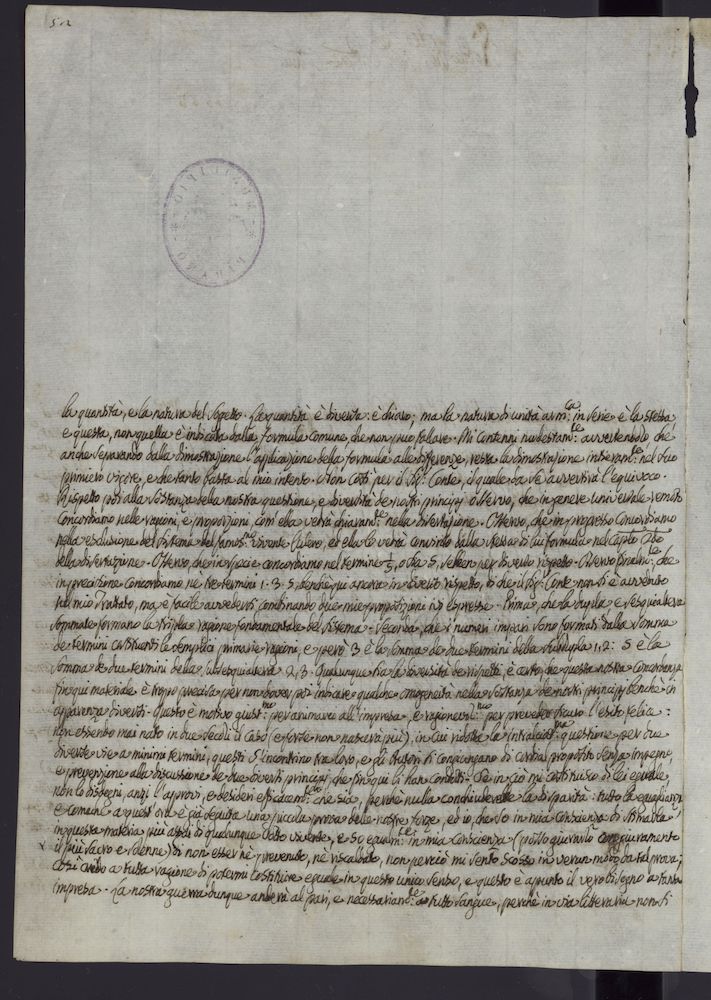 52
la quantità, e la natura del Sogetto. La quantità è diversa: è chiaro; ma la natura di unità arm:ca in Serie è la stessa,
e questa, non quella è indicata dalla formula comune, che non può fallare. Mi contenni modestam:te avvertendo che
anche separando dalla dimostrazione l'applicazione della formula alle differenze, resta la dimostrazione interam:te nel suo
primiero vigore, e che tanto basta al mio intento. Non così per il Sig: Conte, il quale da se avvertirà l'equivoco.
Rispetto poi alla Sostanza della nostra questione, e diversità de nostri principj osservo, che in genere universale remoto
concordiamo nelle ragioni, e proporzioni, com'ella vedrà chiaram:te nella dissertazione. Osservo, che in progresso concordiamo
nella esclusione del Sistema del famos:mo vivente Eulero, ed ella lo vedrà convinto dalla stessa di lui formula nel Capito
della dissertazione. Osservo, che in specie concordiamo nel termine 1/5, o sia 5, sebben per diverso rispetto. Osservo finalm:te, che
in precisione concordiamo ne tre termini 1. 3. 5, benchè qui ancora in diverso rispetto, di che il Sig: Conte non si è avveduto
nel mio Trattato, ma è facile avvedersi combinando due mie proposizioni ivi espresse. Prima, che la dupla, e sesquialtera
sommate formano la tripla ragione fondamentale del Sistema. Seconda, che i numeri impari sono formati dalla somma
de termini costituenti le semplici primarie ragioni, e però 3 è la somma de due termini della subdupla 1, 2: 5 è la
somma de due termini della subsesquialtera 2, 3. Qualunque sia la diversità de rispetti, è certo, che questa nostra concordanza
fin qui materiale è troppo precisa per non dover poi indicare qualche omogeneità nella Sostanza de nostri principj benchè in
apparenza diversi. Questo è motivo giust:mo per animarci all'impresa, e ragionevol:mo per preveder sicuro l'esito felice:
non essendo mai nato in due secoli il caso (e forse non nascerà più), in cui ridotta la intralciat:ma questione per due
diverse vie a minimi termini, questi s'incontrino tra loro, e gli Autori si congiungano di cordial proposito senza impegno,
e prevenzione alla discussione de due diversi principj che fin qui li han condotti. Se in ciò mi costituisco di lei eguale,
non lo disdegni, anzi l'approvi, e desideri efficacem:te che sia, perchè nulla conchiuderebbe la disparità: tutto la eguaglianza
e comechè a quest'ora è già seguita una piccola prova delle nostre forze, ed io, che so in mia Conscienza di
in questa materia più assai di qualunque dotto vivente, e so egualm:te in mia Conscienza (posso giurarlo con giuramento
il più sacro e solenne) di non esser nè prevenuto, nè riscaldato, non perciò mi sento scosso in verun modo da tal prova;
così credo a tutta ragione di potermi costituire eguale in questo unico senso, e questo è apunto il vero bisogno a tanta
impresa. La nostra guerra dunque anderà al pari, e necessariam:te a tutto sangue, perchè in via letteraria non si